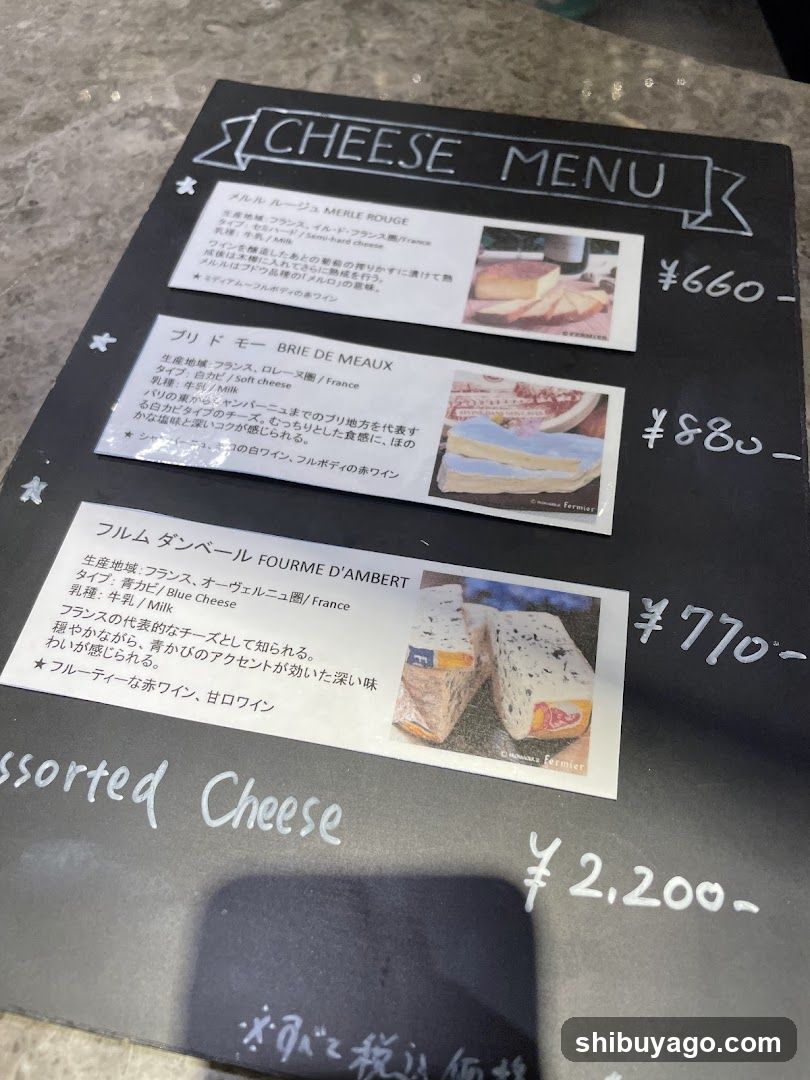 CHEESE MENU
メルル ルージュ MERLE ROUGE
生産地域：フランス、イル・ド・フランス圏/France
タイプ：セミハード / Semi-hard cheese
乳種：牛乳 / Milk
ワインを醸造したあとの葡萄の搾りかすに漬けて熟
成後は木樽に入れてさらに熟成を行う。
メルルはブドウ品種の「メルロ」の意味。
★ ミディアム～フルボディの赤ワイン
¥660-
ブリ ド モー BRIE DE MEAUX
生産地域：フランス、ロレーヌ圏 / France
タイプ：白カビ / Soft cheese
乳種：牛乳 / Milk
パリの東からシャンパーニュまでのブリ地方を代表す
る白カビタイプのチーズ。むっちりとした食感に、ほの
かな塩味と深いコクが感じられる。
★ シャンパーニュ、コの白ワイン、フルボディの赤ワイン
Fermier
¥880-
フルム ダンベール FOURME D'AMBERT
生産地域：フランス、オーヴェルニュ圏/ France
タイプ：青カビ / Blue Cheese
乳種：牛乳 / Milk
フランスの代表的なチーズとして知られる。
穏やかながら、青かびのアクセントが効いた深い味
わいが感じられる。
★ フルーティーな赤ワイン、甘口ワイン
Fermier
¥770-
ssorted Cheese
¥2,200-
※すべて税込価格
shibuyago.com